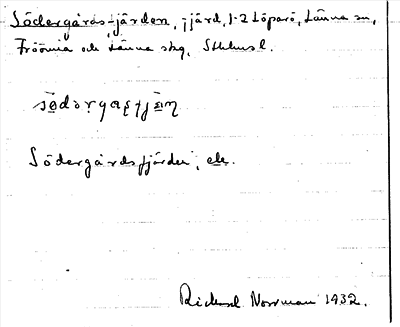 Södergårds-fjärden, fjärd, 1-2 Löparö, Länna sn,
Frötuna och Länna skg, Sthlms l.
Södergårdsfjärden,
Rickard Norrman 1932.